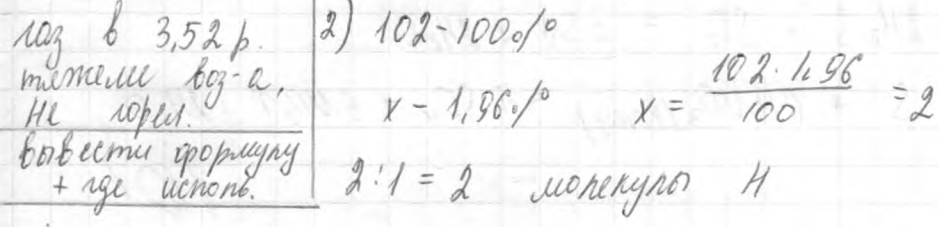 газ в 3,52 р.
тяжели воз-а,
не горел.
вывести формулу
+ где исполь.
2) 102 - 100%
x - 1,96% x = 102 · 1,96 / 100 = 2
2 : 1 = 2 молекулы H